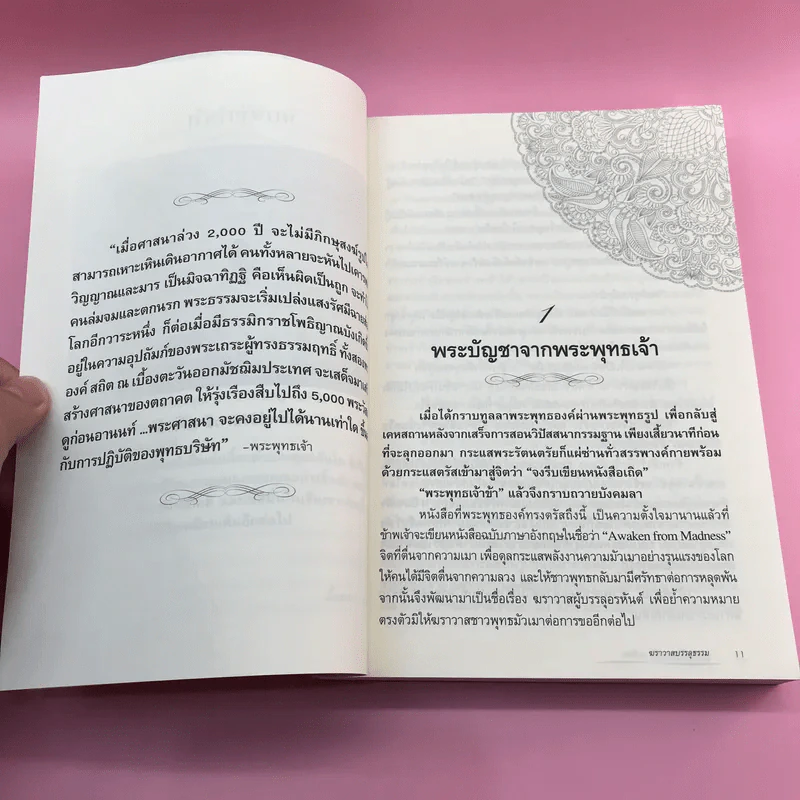 “เมื่อศาสนาล่วง 2,000 ปี จะไม่มีภิกษุสงฆ์
สามารถเหาะเหินเดินอากาศได้ คนทั้งหลายจะหันไป
วิญญาณและมาร เป็นมิจฉาทิฏฐิ คือเห็นผิดเป็นถูก
คนล่มจมและตกนรก พระธรรมจะเริ่มเปล่งแสงรัศมี
โลกอีกวาระหนึ่ง ก็ต่อเมื่อมีธรรมิกราชโพธิญาณ
อยู่ในความอุปถัมภ์ของพระเถระผู้ทรงธรรมฤทธิ์ ทั้งสอง
องค์ สถิต ณ เบื้องตะวันออกมัชฌิมประเทศ จะเสด็จมา
สร้างศาสนาของตถาคต ให้รุ่งเรืองสืบไปถึง 5,000
ดูก่อนอานนท์ ...พระศาสนา จะคงอยู่ไปได้นานเท่าใด
กับการปฏิบัติของพุทธบริษัท” -พระพุทธเจ้า
1
พระบัญชาจากพระพุทธเจ้า
เมื่อได้กราบทูลลาพระพุทธองค์ผ่านพระพุทธรูป เพื่อกลับสู่
เคหสถานหลังจากเสร็จการสอนวิปัสสนากรรมฐาน เพียงเสี้ยวนาทีก่อน
ที่จะลุกออกมา กระแสพระรัตนตรัยก็แผ่ซ่านทั่วสรรพางค์กายพร้อม
ด้วยกระแสตรัสเข้ามาสู่จิตว่า “จงรีบเขียนหนังสือเถิด”
“พระพุทธเจ้าข้า” แล้วจึงกราบถวายบังคมลา
หนังสือที่พระพุทธองค์ทรงตรัสถึงนี้ เป็นความตั้งใจมานานแล้วที่
ข้าพเจ้าจะเขียนหนังสือฉบับภาษาอังกฤษในชื่อว่า “Awaken from Madness”
จิตที่ตื่นจากความเมา เพื่อดุลกระแสพลังงานความมัวเมาอย่างรุนแรงของโลก
ให้คนได้มีจิตตื่นจากความลวง และให้ชาวพุทธกลับมามีศรัทธาต่อการหลุดพ้น
จากนั้นจึงพัฒนามาเป็นชื่อเรื่อง ฆราวาสผู้บรรลุอรหันต์ เพื่อย้ำความหมาย
ตรงตัวมิให้ฆราวาสชาวพุทธมัวเมาต่อการขออีกต่อไป
ฆราวาสบรรลุธรรม 11